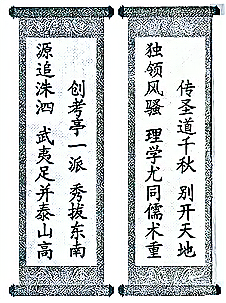 传圣道千秋 别开天地
独领风骚 理学尤同儒术重
创考亭一派 秀拔东南
源追洙泗 武夷足并泰山高